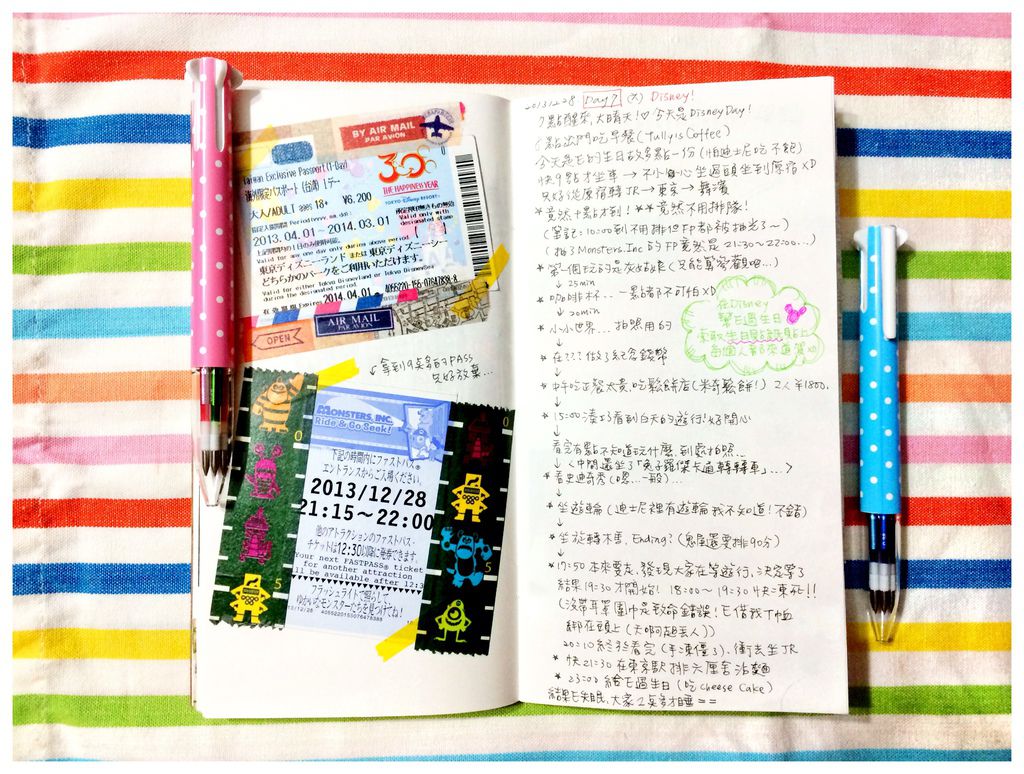 BY AIR MAIL
PAR AVION
Taiwan Exclusive Passport (1-Day)
海外限定パスポート (台湾) 1デー
大人/ADULT ages 18+ ¥6,200
30
THE HAPPINESS YEAR
TOKYO Disney RESORT
Period(yyyy.mm.dd)
2013.04.01 ~ 2014.03.01
Valid only with
designated stamp
Valid for any one day only during above period
東京ディズニーランド または 東京ディズニーシー
どちらかのパークをご利用いただけます。
Valid for either Tokyo Disneyland or Tokyo DisneySea
during the designated period.
有効期限 Expires 2014.04.01
AIR MAIL
PAR AVION
OPEN
拿到9点多的PASS
只好放棄…
MONSTERS, INC.
Ride & Go Seek!
下記の時間内にファストパス®
エントランスからご入場ください。
2013/12/28
21:15~22:00
他のアトラクションのファストパス・
チケットは12:30以降に発券できます。
Your next FASTPASS® ticket
for another attraction
will be available after 12:3
フラッシュライトで照らして
ゆかいなモンスターたちを見つけてね!
2013.12.28 Day7 (六) Disney!
7點醒來,大晴天!♡ 今天是Disney Day!
8點出門吃早餐 (tully's Coffee)
今天是E的生日故多點一份 (怕迪士尼吃不飽)
快9點才坐車 → 不小心坐過頭坐到原宿 XD
只好從原宿轉 JR → 東京 → 舞濱
* 竟然十點才到! ** 竟然不用排隊!
(筆記: 10:00到不用排但FP都被抽光了~)
(抽了Monsters, Inc 的 FP 竟然是 21:30~22:00…)
* 第一個玩的是灰姑娘 (只能算參觀吧…)
↓ 25min
* 咖啡杯… 一點都不可怕XD
↓ 20min
* 小小世界… 拍照用的
↓
* 在??? 做了紀念錢幣
↓
* 中午吃正餐太貴,吃鬆餅店 (米奇鬆餅!) 2人 ¥1800.
↓
* 15:00 湊巧看到白天的遊行!好開心
↓
看完有點不知道玩什麼,到處拍照…
↓ <中間還坐了「兔子羅傑卡通轉轉車」…>
* 看史迪奇秀 (嗯…一般) …
↓
* 坐遊輪 (迪士尼裡有遊輪我不知道!不錯)
↓
* 坐旋轉木馬, Ending? (鬼屋還要排90分)
↓
* 17:50 本來要走,發現大家在等遊行,決定等了
結果 19:30 才開始! 18:00~19:30 快凍死!!
(沒帶耳罩圍巾是致命錯誤; E借我T恤
綁在頭上 (天啊超丟人))
20:10 終於看完 (手凍僵了), 衝去坐JR
* 快21:30 在東京駅 排六厘舍沾麵
* 23:00 給E過生日 (吃cheese cake)
結果E失眠,大家2點多才睡==
在Disney
幫E過生日
索取生日貼紙貼上
每個人都來道賀XD